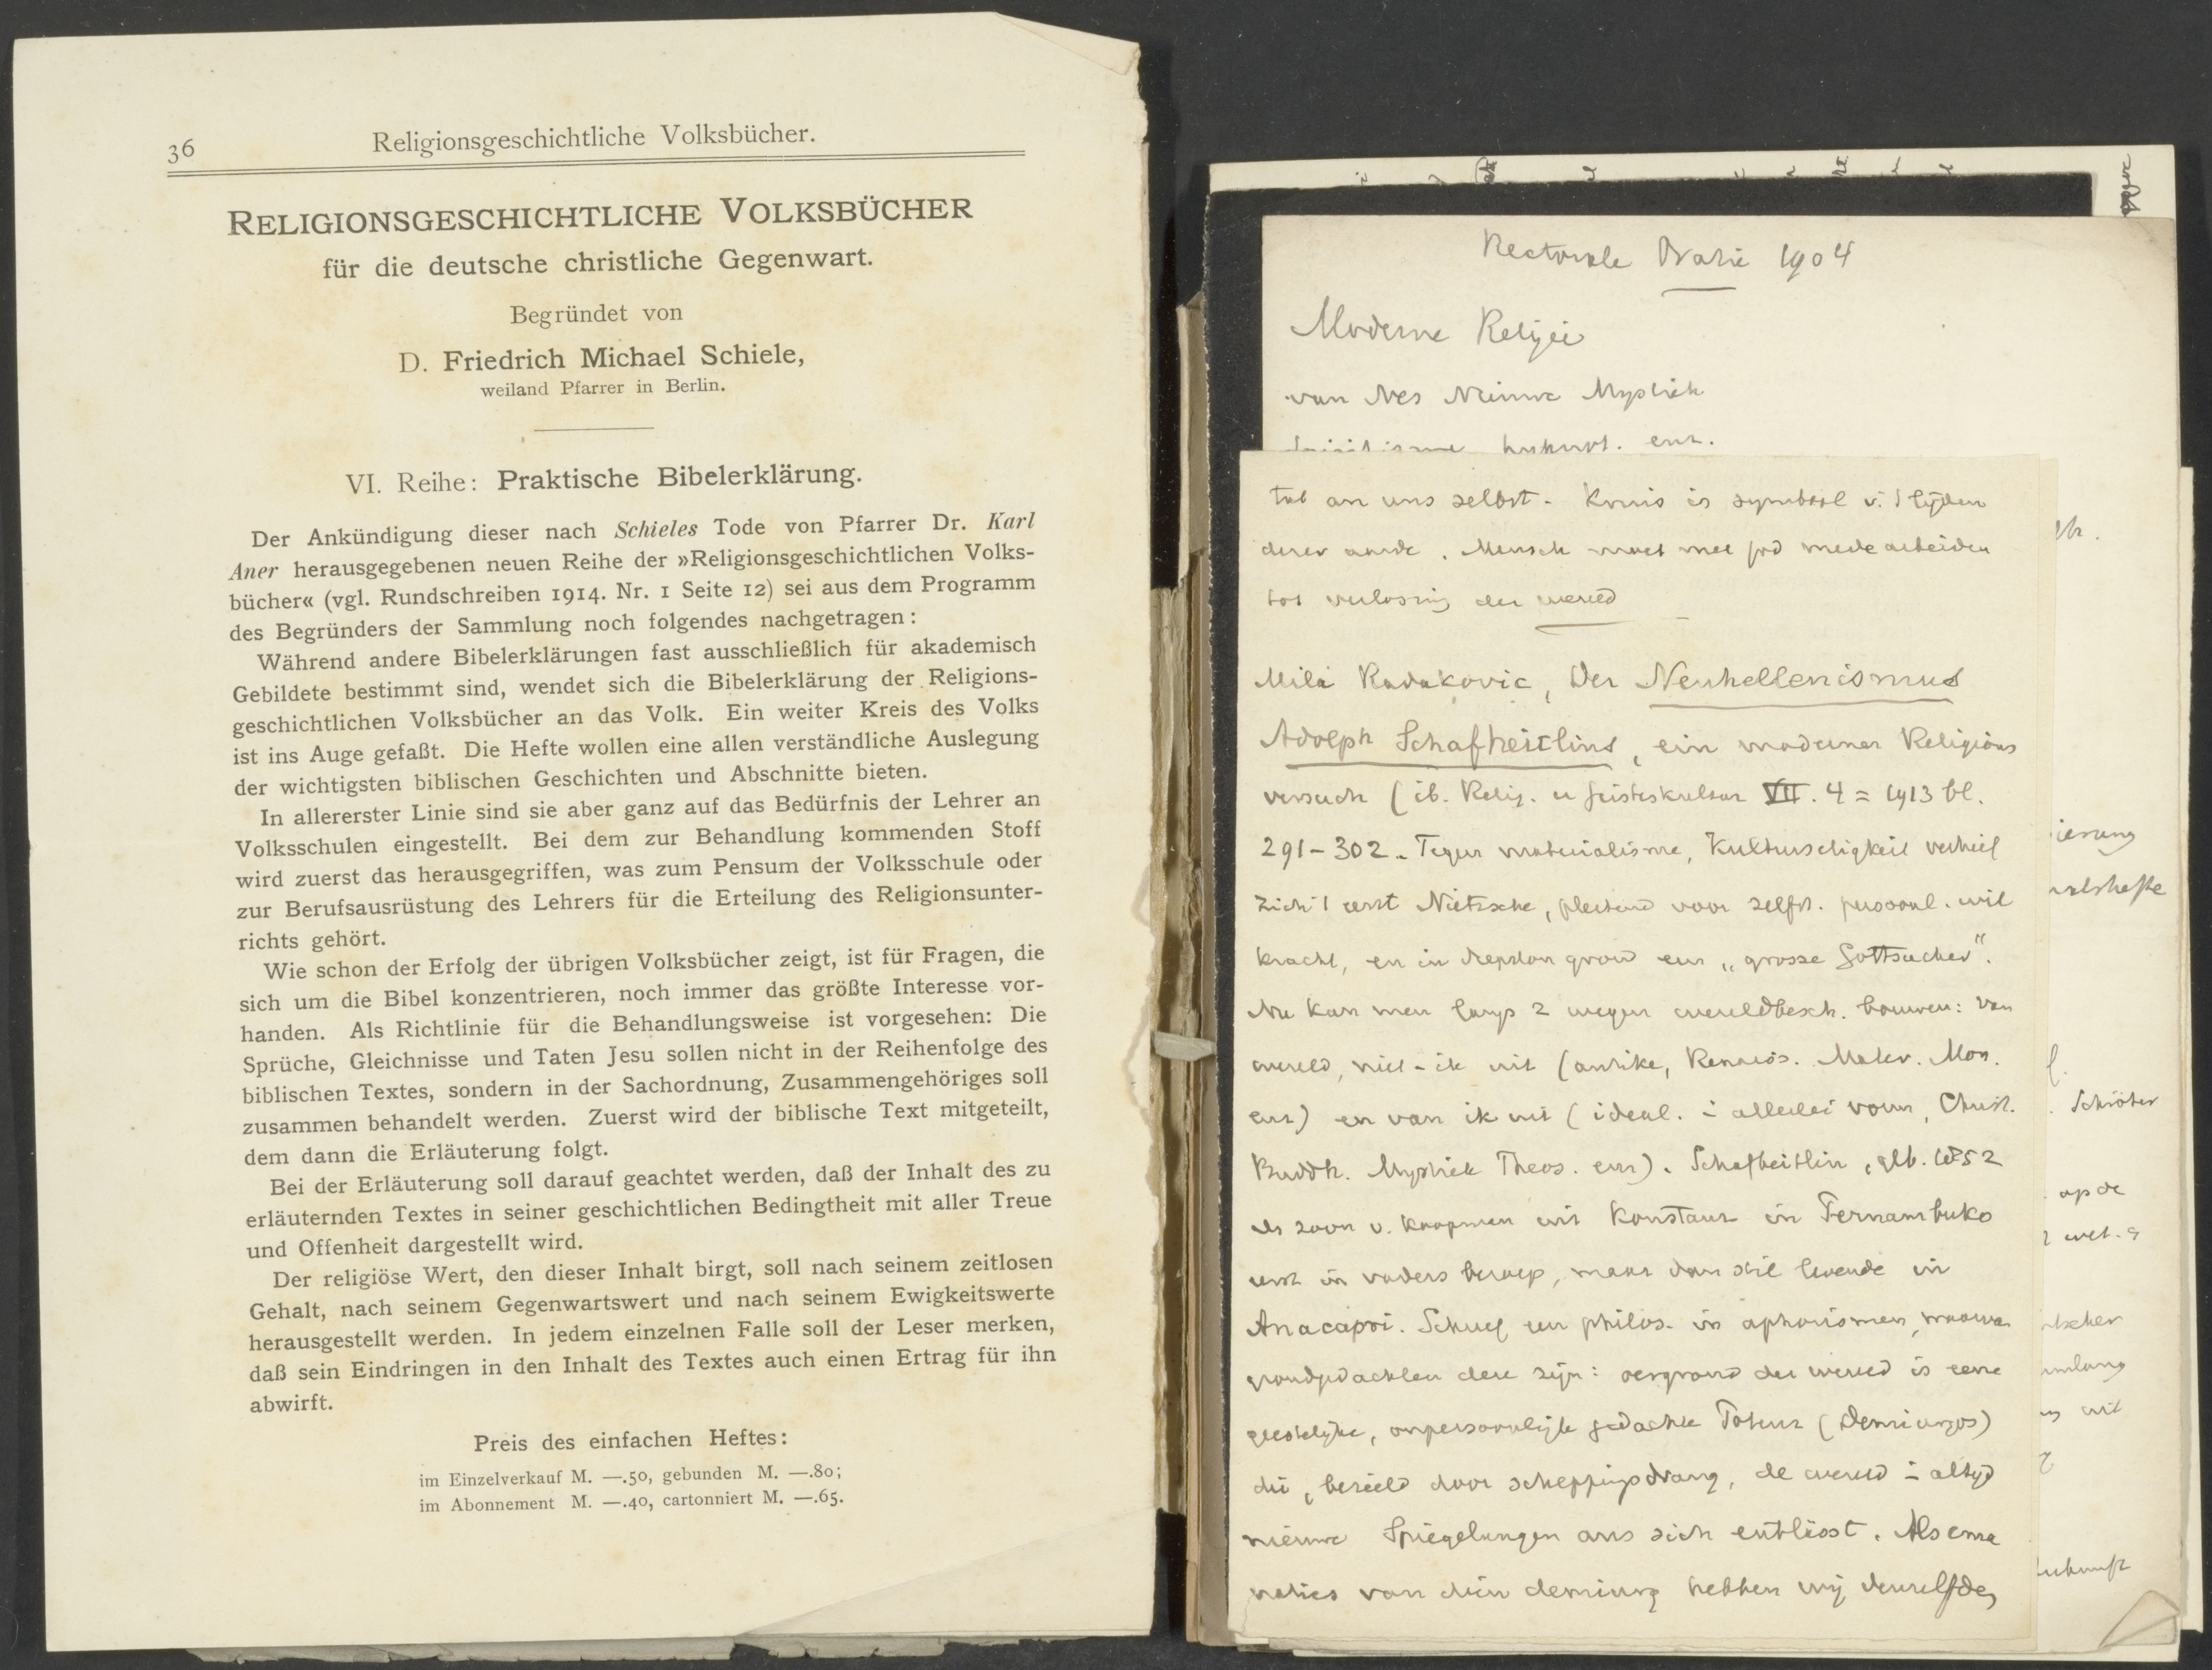 36
Religionsgeschichtliche Volksbücher.
RELIGIONSGESCHICHTLICHE VOLKSBÜCHER
für die deutsche christliche Gegenwart.
Begründet von
D. Friedrich Michael Schiele,
weiland Pfarrer in Berlin.
VI. Reihe: Praktische Bibelerklärung.
Der Ankündigung dieser nach Schieles Tode von Pfarrer Dr. Karl
Aner herausgegebenen neuen Reihe der »Religionsgeschichtlichen Volks-
bücher« (vgl. Rundschreiben 1914. Nr. 1 Seite 12) sei aus dem Programm
des Begründers der Sammlung noch folgendes nachgetragen:
Während andere Bibelerklärungen fast ausschließlich für akademisch
Gebildete bestimmt sind, wendet sich die Bibelerklärung der Religions-
geschichtlichen Volksbücher an das Volk. Ein weiter Kreis des Volks
ist ins Auge gefaßt. Die Hefte wollen eine allen verständliche Auslegung
der wichtigsten biblischen Geschichten und Abschnitte bieten.
In allererster Linie sind sie aber ganz auf das Bedürfnis der Lehrer an
Volksschulen eingestellt. Bei dem zur Behandlung kommenden Stoff
wird zuerst das herausgegriffen, was zum Pensum der Volksschule oder
zur Berufsausrüstung des Lehrers für die Erteilung des Religionsunter-
richts gehört.
Wie schon der Erfolg der übrigen Volksbücher zeigt, ist für Fragen, die
sich um die Bibel konzentrieren, noch immer das größte Interesse vor-
handen. Als Richtlinie für die Behandlungsweise ist vorgesehen: Die
Sprüche, Gleichnisse und Taten Jesu sollen nicht in der Reihenfolge des
biblischen Textes, sondern in der Sachordnung, Zusammengehöriges soll
zusammen behandelt werden. Zuerst wird der biblische Text mitgeteilt,
dem dann die Erläuterung folgt.
Bei der Erläuterung soll darauf geachtet werden, daß der Inhalt des zu
erläuternden Textes in seiner geschichtlichen Bedingtheit mit aller Treue
und Offenheit dargestellt wird.
Der religiöse Wert, den dieser Inhalt birgt, soll nach seinem zeitlosen
Gehalt, nach seinem Gegenwartswert und nach seinem Ewigkeitswerte
herausgestellt werden. In jedem einzelnen Falle soll der Leser merken,
daß sein Eindringen in den Inhalt des Textes auch einen Ertrag für ihn
abwirft.
Preis des einfachen Heftes:
im Einzelverkauf M. —.50, gebunden M. —.80;
im Abonnement M. —.40, cartonniert M. —.65.
Rectorale Oratie 1904
Moderne Religie
van Nes Nieuwe Mystiek
enz.
an uns selbst - Kruis is symbool v. 't lijden
dezer aarde. Mensch moet met god mede arbeiden
tot verlossing der wereld
Mila Radakovic, Der Neuhellenismus
Adolph Schafheitlins, ein moderner Religions
versuch (ib. Relig. u Geisteskultur VII. 4 = 1913 bl.
291-302. Tegen materialisme, Kulturseligkeit verhief
zich 't eerst Nietzsche, pleitend voor zelfst. persoonl. wil
kracht, en in diepsten grond een „grosse Gottsucher".
Nu kan men langs 2 wegen wereldbesch. bouwen: van
wereld, niet-ik uit (antike, Renaiss. Mater. Mon.
enz) en van ik uit (ideal. in allerlei vorm, Christ.
Buddh. Mystiek Theos. enz). Schafheitlin, geb. 1852
als zoon v. koopman uit Konstanz in Pernambuko
eerst in vaders beroep, maar dan stil levende in
Anacapri. Schreef een philos. in aphorismen, waarvan
grondgedachten deze zijn: oergrond der wereld is eene
geestelijke, onpersoonlijk gedachte Potenz (Demiurgos)
die, bezield door scheppingsdrang, de wereld in altijd
nieuwe Spiegelungen aus sich entlässt. Als ema
naties van dien demiurg hebben wij denzelfden
ierung
Schröter
op de
wet.